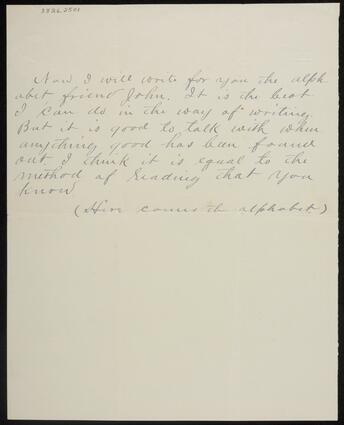 3826.2501
Now I will write for you the alph
abet friend John. It is the best
I can do in the way of writing.
But it is good to talk with when
anything good has been found
out I think it is equal to the
method of reading that you
know
(Here comes th alphabet.)